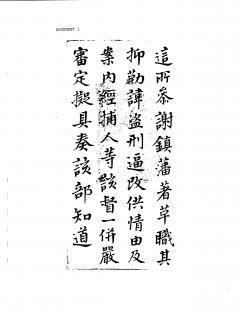 DOCUMENT 1
這所叅謝鎮藩著草職其
抑勒諱盜刑逼改供情由及
案內經捕人等該督一併嚴
審定擬具奏該部知道